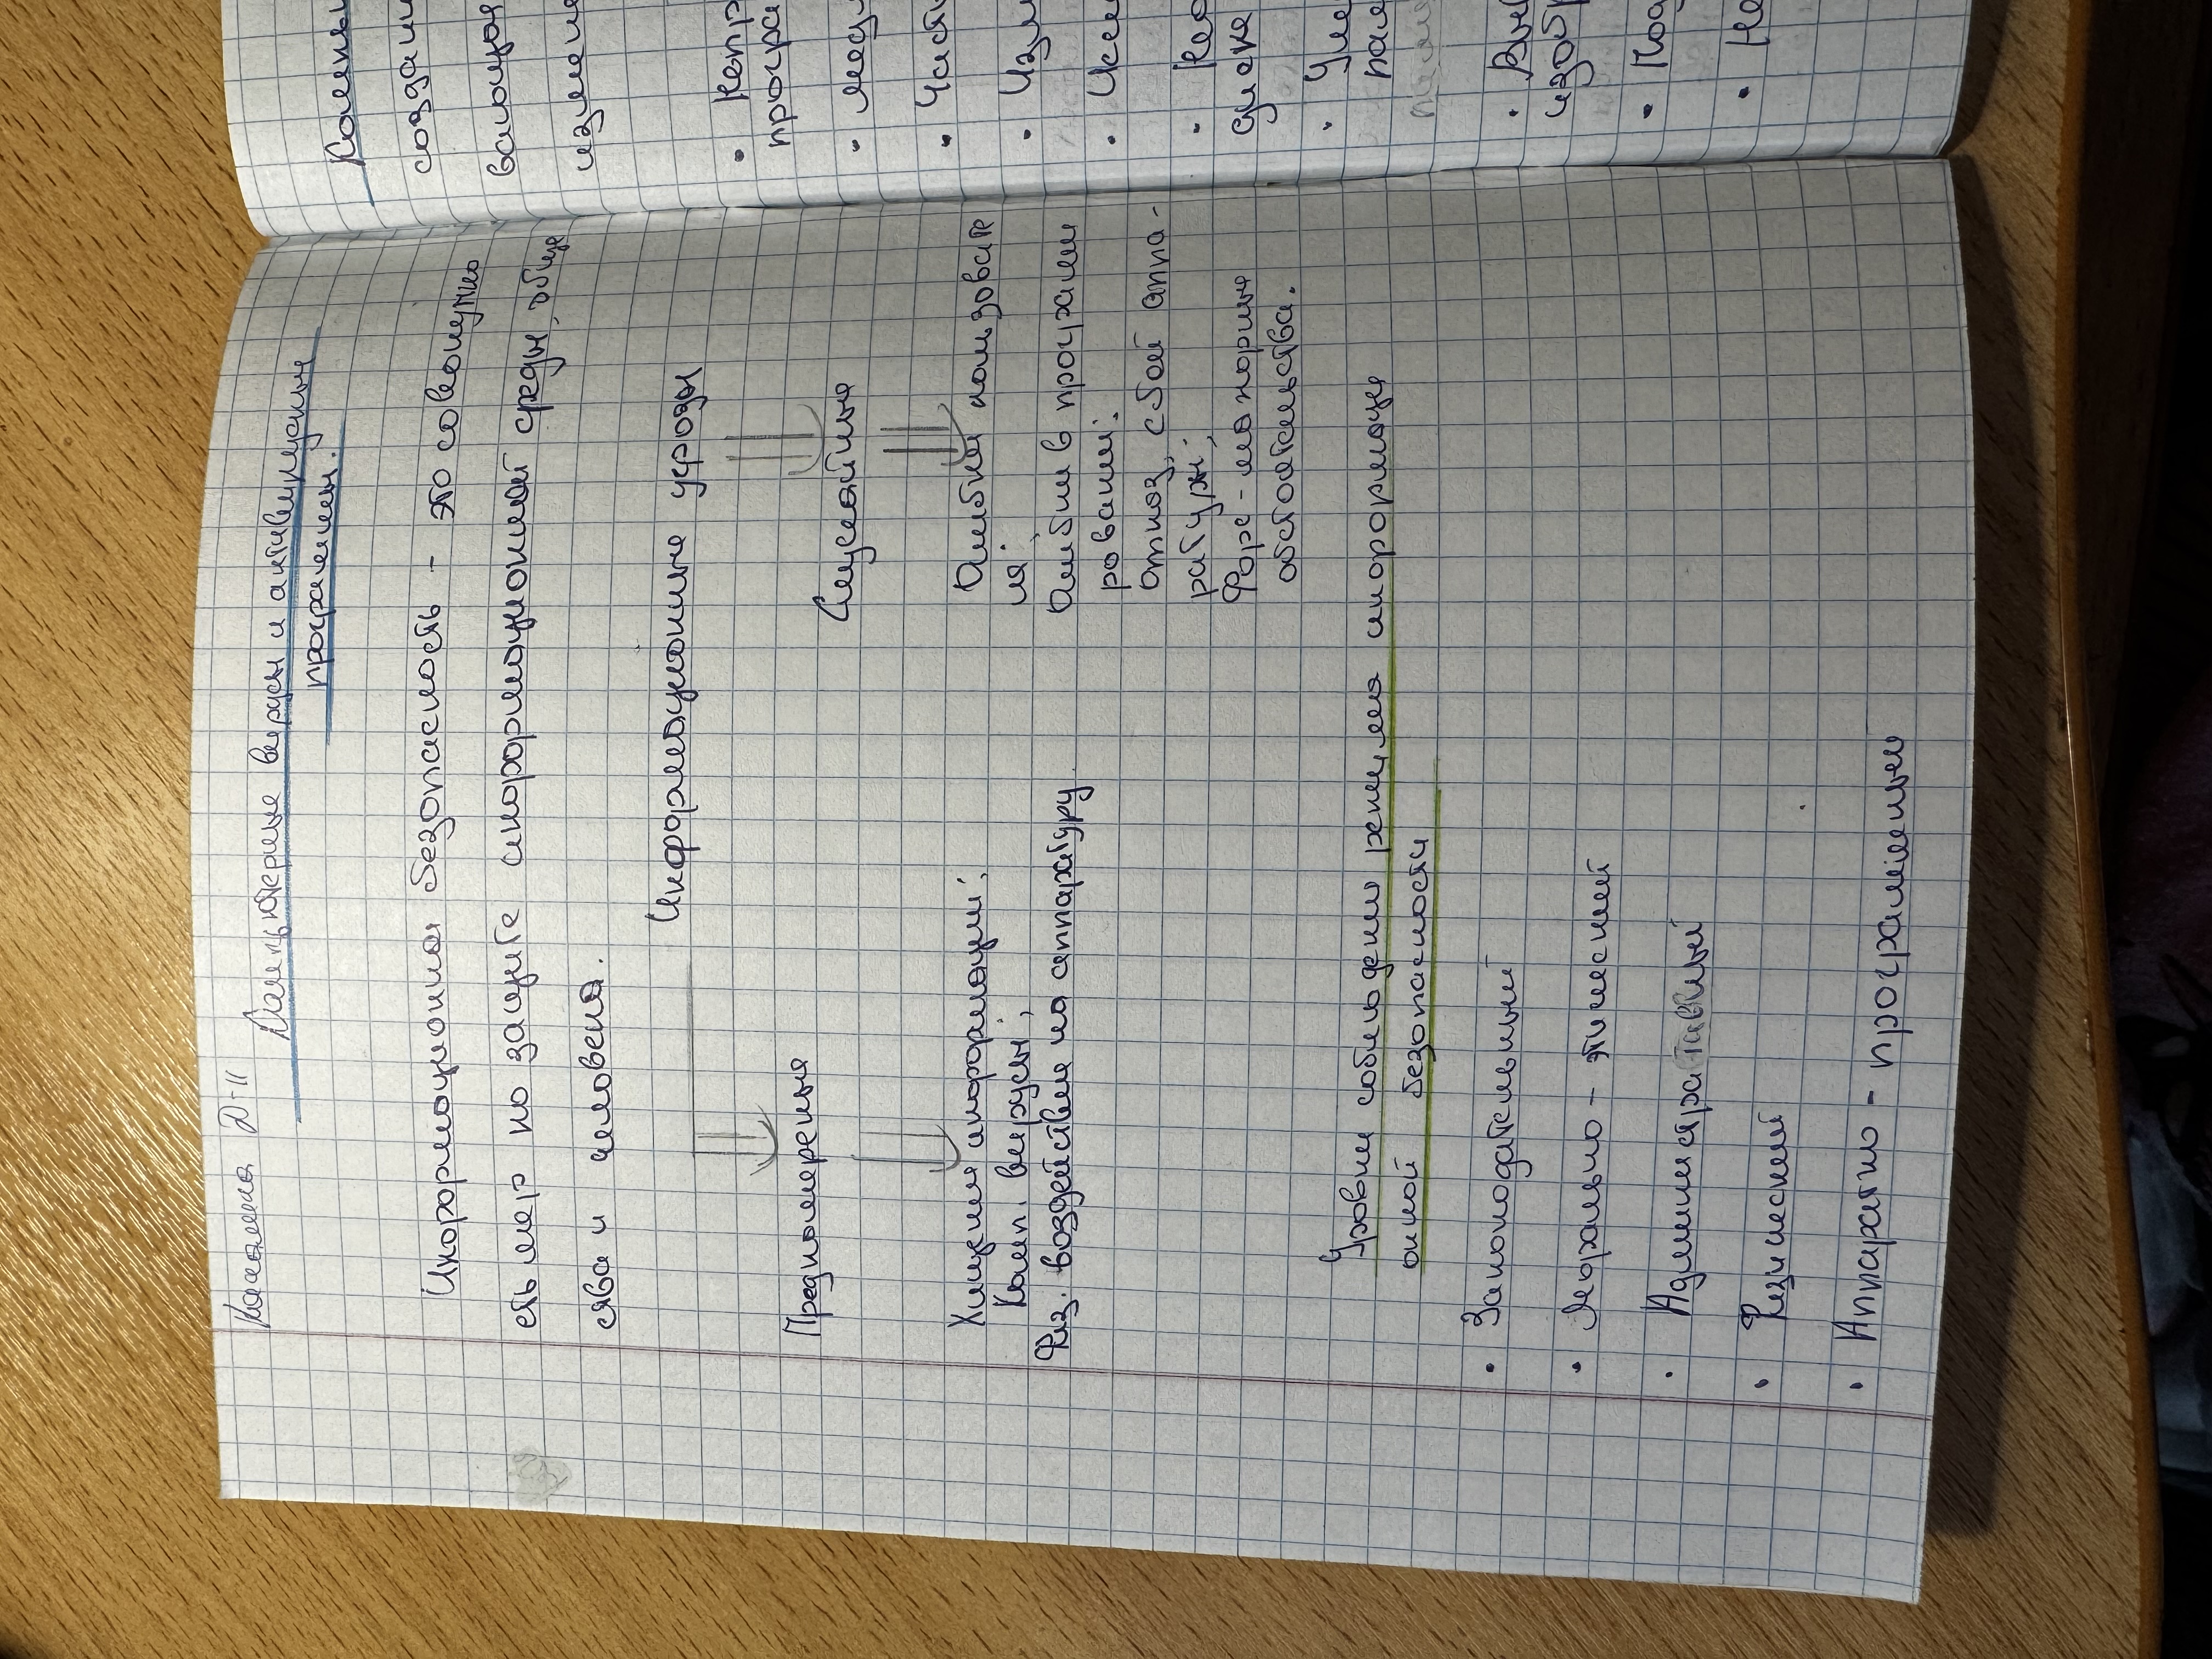 Д-11
Компьютерные вирусы и антивирусные
программы.
Информационная безопасность - это совокупно
сть мер по защите информационной среды, обще
ства и человека.
Информационные угрозы
Преднамерены
Случайные
Хищения информации;
Комп. вирусы;
Физ. воздействия на аппаратуру
Ошибки пользовате
ля;
Ошибки в програм
ровании;
Отказ, сбой аппа-
ратуры;
Форс-мажорные
обстоятельства.
Уровни соблюдени режима информаци
онной безопасности
• Законодательный
• Морально - этический
• Административный
• Физический
• Аппаратно - программный
создан
• Непр
програ
• Част